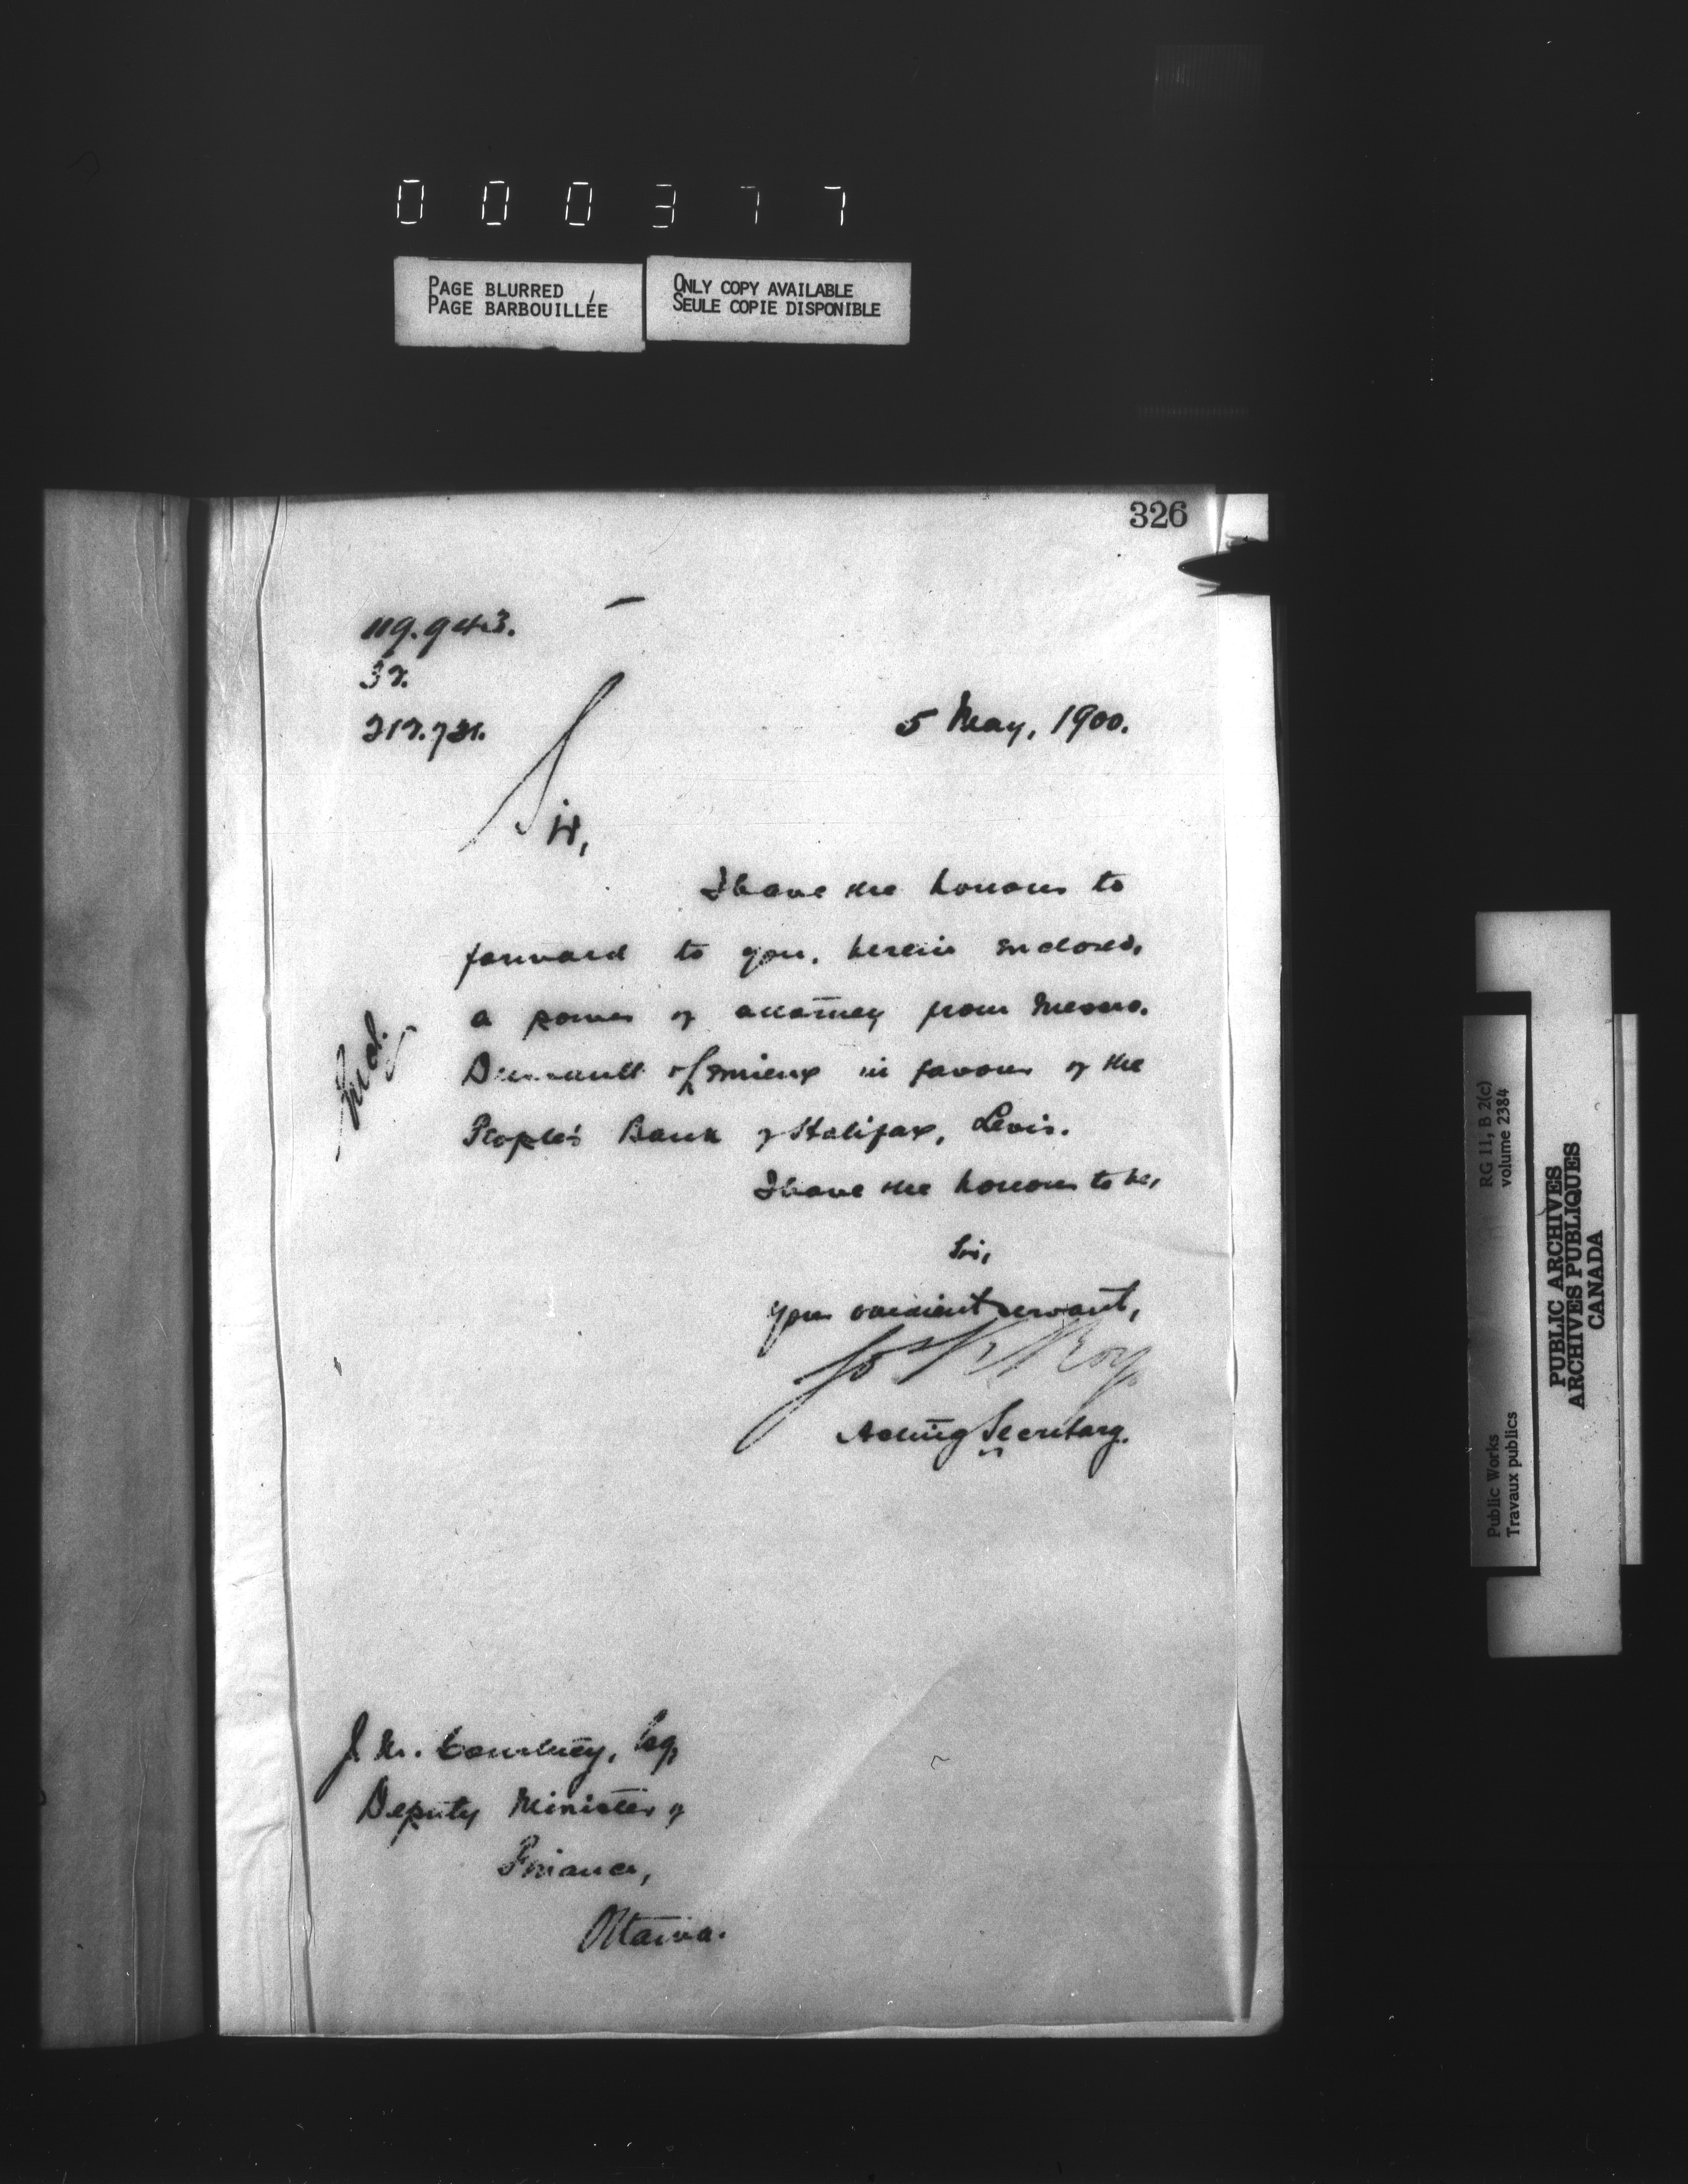 000377
PAGE BLURRED
PAGE BARBOUILLÉE
ONLY COPY AVAILABLE
SEULE COPIE DISPONIBLE
326
119.943.
5 May, 1900.
Sir,
I have the honour to
forward to you, herein enclosed,
a power of attorney from Messrs.
in favour of the
People's Bank of Halifax, Levis.
Incl.
I have the honour to be,
Sir,
Your obedient servant,
Jos R Roy
Acting Secretary.
J. M. Courtney, Esq,
Deputy Minister of
Finance,
Ottawa.
RG 11, B 2(c)
volume 2384
Public Works
Travaux publics
PUBLIC ARCHIVES
ARCHIVES PUBLIQUES
CANADA